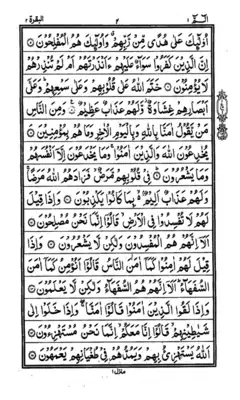 الٓمّٓ ١ ٢ البقرة ٢
اُولٰٓئِكَ عَلٰى هُدًى مِّنْ رَّبِّهِمْ وَاُولٰٓئِكَ هُمُ الْمُفْلِحُوْنَ ۝
اِنَّ الَّذِيْنَ كَفَرُوْا سَوَآءٌ عَلَيْهِمْ ءَاَنْذَرْتَهُمْ اَمْ لَمْ تُنْذِرْهُمْ
لَا يُؤْمِنُوْنَ ۝ خَتَمَ اللّٰهُ عَلٰى قُلُوْبِهِمْ وَعَلٰى سَمْعِهِمْ وَعَلٰٓى
اَبْصَارِهِمْ غِشَاوَةٌ وَّلَهُمْ عَذَابٌ عَظِيْمٌ ۝ وَمِنَ النَّاسِ
مَنْ يَّقُوْلُ اٰمَنَّا بِاللّٰهِ وَبِالْيَوْمِ الْاٰخِرِ وَمَا هُمْ بِمُؤْمِنِيْنَ ۝
يُخٰدِعُوْنَ اللّٰهَ وَالَّذِيْنَ اٰمَنُوْا وَمَا يَخْدَعُوْنَ اِلَّآ اَنْفُسَهُمْ
وَمَا يَشْعُرُوْنَ ۝ فِيْ قُلُوْبِهِمْ مَّرَضٌ فَزَادَهُمُ اللّٰهُ مَرَضًا
وَلَهُمْ عَذَابٌ اَلِيْمٌ بِمَا كَانُوْا يَكْذِبُوْنَ ۝ وَاِذَا قِيْلَ
لَهُمْ لَا تُفْسِدُوْا فِي الْاَرْضِ قَالُوْٓا اِنَّمَا نَحْنُ مُصْلِحُوْنَ ۝
اَلَآ اِنَّهُمْ هُمُ الْمُفْسِدُوْنَ وَلٰكِنْ لَّا يَشْعُرُوْنَ ۝ وَاِذَا
قِيْلَ لَهُمْ اٰمِنُوْا كَمَآ اٰمَنَ النَّاسُ قَالُوْٓا اَنُؤْمِنُ كَمَآ اٰمَنَ
السُّفَهَآءُ اَلَآ اِنَّهُمْ هُمُ السُّفَهَآءُ وَلٰكِنْ لَّا يَعْلَمُوْنَ ۝
وَاِذَا لَقُوا الَّذِيْنَ اٰمَنُوْا قَالُوْٓا اٰمَنَّا وَاِذَا خَلَوْا اِلٰى
شَيٰطِيْنِهِمْ قَالُوْٓا اِنَّا مَعَكُمْ اِنَّمَا نَحْنُ مُسْتَهْزِءُوْنَ ۝
اَللّٰهُ يَسْتَهْزِئُ بِهِمْ وَيَمُدُّهُمْ فِيْ طُغْيَانِهِمْ يَعْمَهُوْنَ ۝